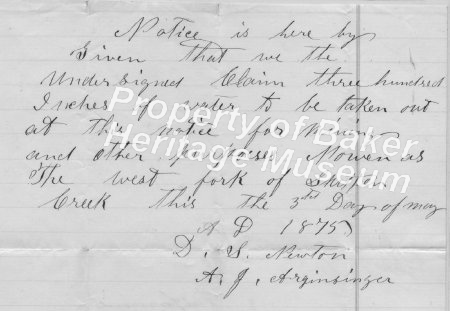 Notice is here by
Given that we the
Undersigned Claim three hundred
Inches of water to be taken out
at this notice for mining
and other purposes Nowen as
The west fork of
Creek this the 3rd Day of may
A D 1875
D. S. Newton
A. J. Arginsinger
Property of Baker
Heritage Museum